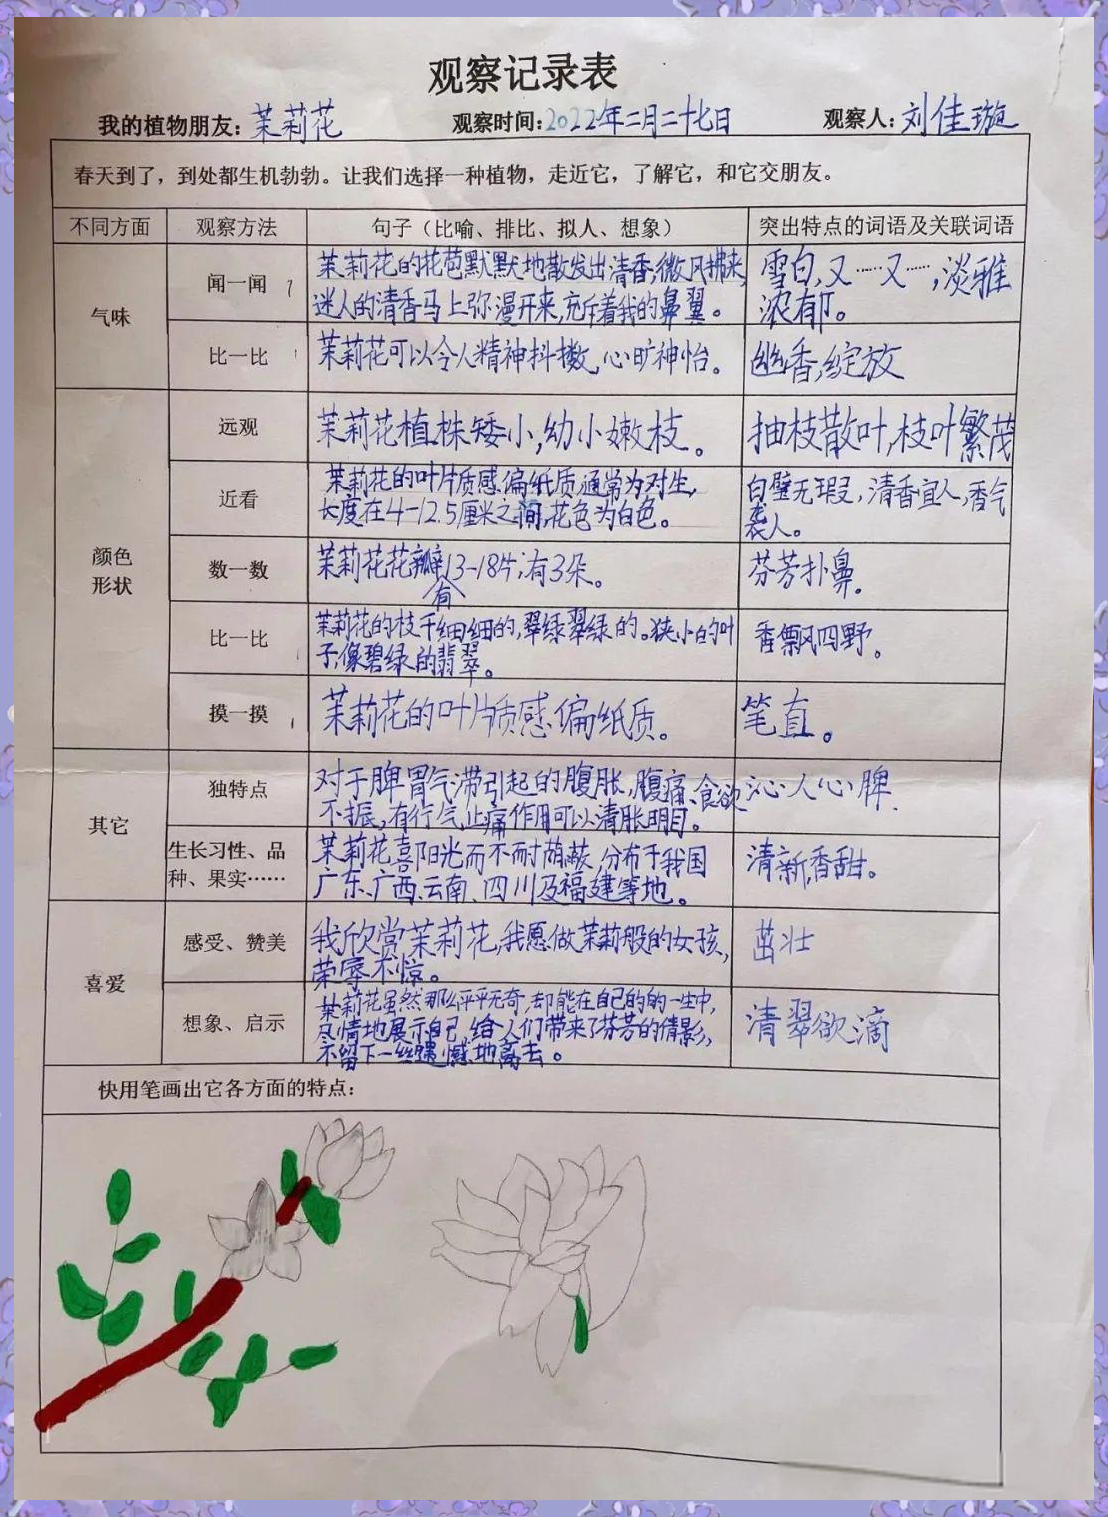 观察记录表
我的植物朋友：茉莉花 观察时间：2022年二月二十七日 观察人：刘佳璇
春天到了，到处都生机勃勃。让我们选择一种植物，走近它，了解它，和它交朋友。
不同方面 观察方法 句子（比喻、排比、拟人、想象） 突出特点的词语及关联词语
气味
闻一闻
茉莉花的花苞默默地散发出清香，微风拂来，
迷人的清香马上弥漫开来，充斥着我的鼻翼。
雪白，又……又……，淡雅
浓郁。
比一比
茉莉花可以令人精神抖擞，心旷神怡。
幽香，绽放
颜色
形状
远观
茉莉花植株矮小，幼小嫩枝。
抽枝散叶，枝叶繁茂
近看
茉莉花的叶片质感偏纸质，通常为对生，
长度在4-12.5厘米之间，花色为白色。
白璧无瑕，清香宜人，香气
袭人。
数一数
茉莉花花瓣有13-18片，有3朵。
芬芳扑鼻。
比一比
茉莉花的枝干细细的，翠绿翠绿的。狭小的叶
子，像碧绿的翡翠。
香飘四野。
摸一摸
茉莉花的叶片质感偏纸质。
笔直。
其它
独特点
对于脾胃气滞引起的腹胀，腹痛、食欲
不振，有行气止痛作用可以清胀明目。
沁人心脾.
生长习性、品
种、果实……
茉莉花喜阳光而不耐荫蔽，分布于我国
广东、广西、云南、四川及福建等地。
清新，香甜。
喜爱
感受、赞美
我欣赏茉莉花，我愿做茉莉般的女孩，
荣辱不惊。
茁壮
想象、启示
茉莉花虽然那么平平无奇，却能在自己的的一生中，
尽情地展示自己，给人们带来了芬芳的倩影，
不留下一丝遗憾地离去。
清翠欲滴
快用笔画出它各方面的特点：